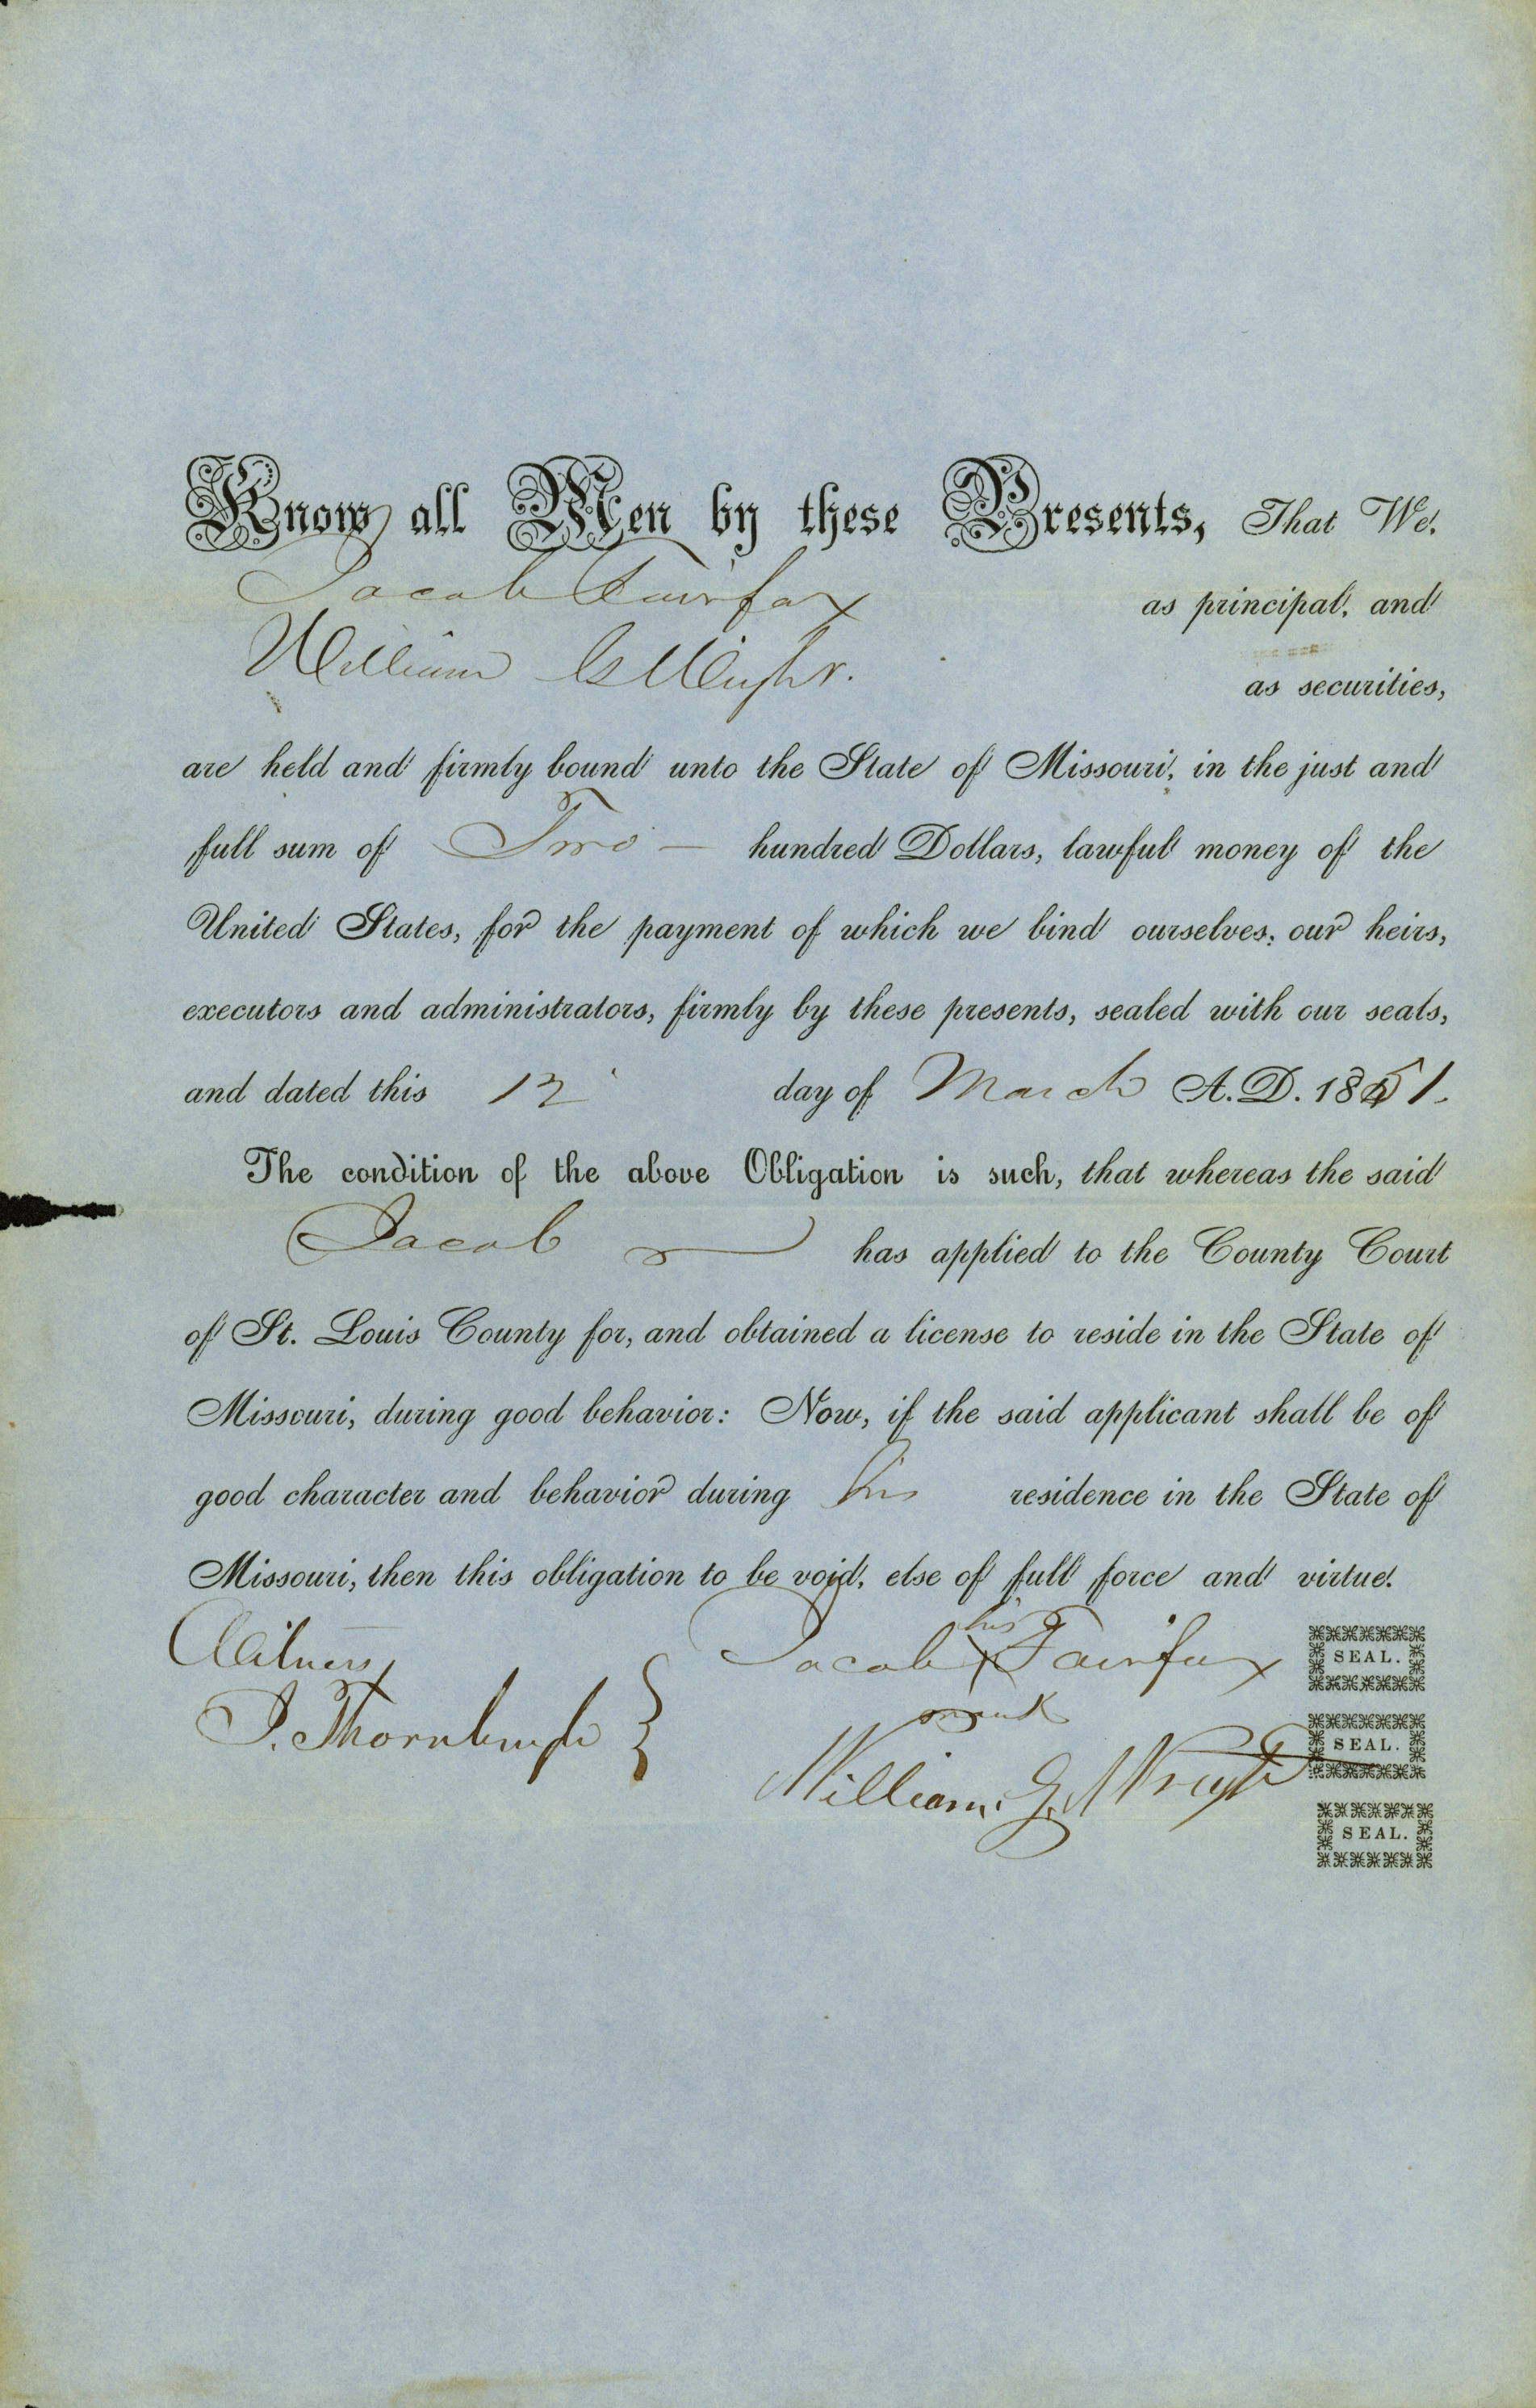 Know all Men by these Presents, That We,
Jacob Fairfax as principal, and
William G Wright. as securities,
are held and firmly bound unto the State of Missouri, in the just and
full sum of Two — hundred Dollars, lawful money of the
United States, for the payment of which we bind ourselves, our heirs,
executors and administrators, firmly by these presents, sealed with our seals,
and dated this 12 day of March A. D. 1851.
The condition of the above Obligation is such, that whereas the said
Jacob has applied to the County Court
of St. Louis County for, and obtained a license to reside in the State of
Missouri, during good behavior: Now, if the said applicant shall be of
good character and behavior during his residence in the State of
Missouri, then this obligation to be void, else of full force and virtue.
Witness
his
Jacob X Fairfax SEAL.
mark
J. Thornburgh
William. G. Wright SEAL.
SEAL.